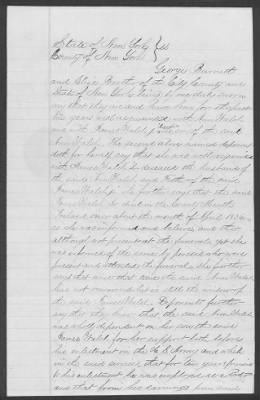 State of New York } ss
County of New York }
George Burnett
and Eliza Booth of the City County and
State of New York being by me duly sworn
say that they
years well acquainted with Ann Walsh
and with James Walsh son of the said
Ann Walsh. The second above named
doth for herself say that she was well acquainted
with James Walsh Deceased the husband of
the said Ann Walsh and Father of the said
James Walsh Jr She further says that the said
James Walsh Sr died in the County
Ireland on or about the month of April
as she was informed and believes and that
although not present at the funeral yet she
was informed of the same by persons who were
present and attended the funeral. She further
says that since that time the said Ann Walsh
has not remarried but is still the widow of
the said James Walsh. Deponents further
say that they know that the said Ann Walsh
was wholly dependent on her son the said
James Walsh for her support both before
his enlistment on the U. S. Army and whilst
in the said service that for two years previous
to his enlistment he was employed as a
and that from his earnings him and